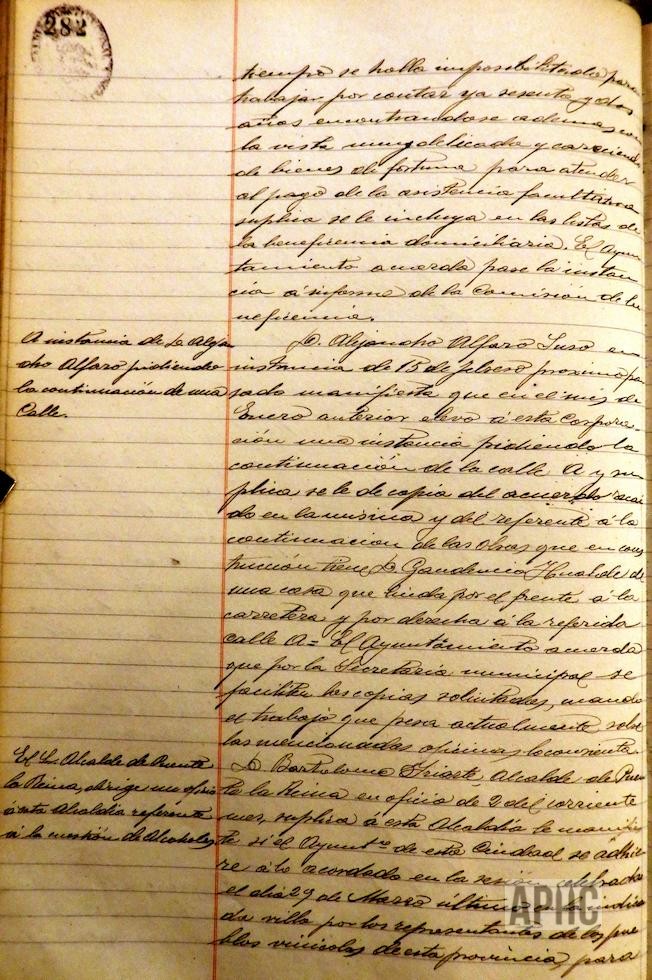 282
tiempo se halla imposibilitado para
trabajar por contar ya sesenta y dos
años encontrandose ademas con
la vista muy delicada y careciendo
de bienes de fortuna para atender
al pago de la asistencia facultativa
suplica se le incluya en las listas de
la beneficencia domiciliaria. El Ayun
tamiento acuerda pase la instan
cia á informe de la Comisión de Be
neficencia.
A instancia de D. Alejan
dro Alfaro pidiendo
la continuación de una
Calle.
D. Alejandro Alfaro Suso en
instancia de 15 de febrero proximo pa
sado manifiesta que en el mes de
Enero anterior elevó á esta Corpora
ción una instancia pidiendo la
continuación de la calle A y su
plica se le de copia del acuerdo recai
do en la misma y del referente á la
continuacion de las obras que en cons
trucción tiene D. Gaudencio Hualde de
una casa que linda por el frente á la
carretera y por derecha á la referida
calle A = El Ayuntamiento acuerda
que por la Secretaria municipal se
faciliten las copias solicitadas, cuando
el trabajo que pesa actualmente sobre
las mencionadas oficinas lo consienta
El Sr. Alcalde de Puente
la Reina, dirige un oficio
á esta Alcaldía referente
á la cuestión de Alcoholes
D. Bartolomé Iriarte, Alcalde de Puen
te la Reina en oficio de 2 del corriente
mes, suplica á esta Alcaldía le manifies
te si el Ayuntto de esta Ciudad se adhie
re á lo acordado en la sesión celebrada
el día 29 de Marzo último en la indica
da villa por los representantes de los pue
blos vinicolas de esta provincia, para
APHC